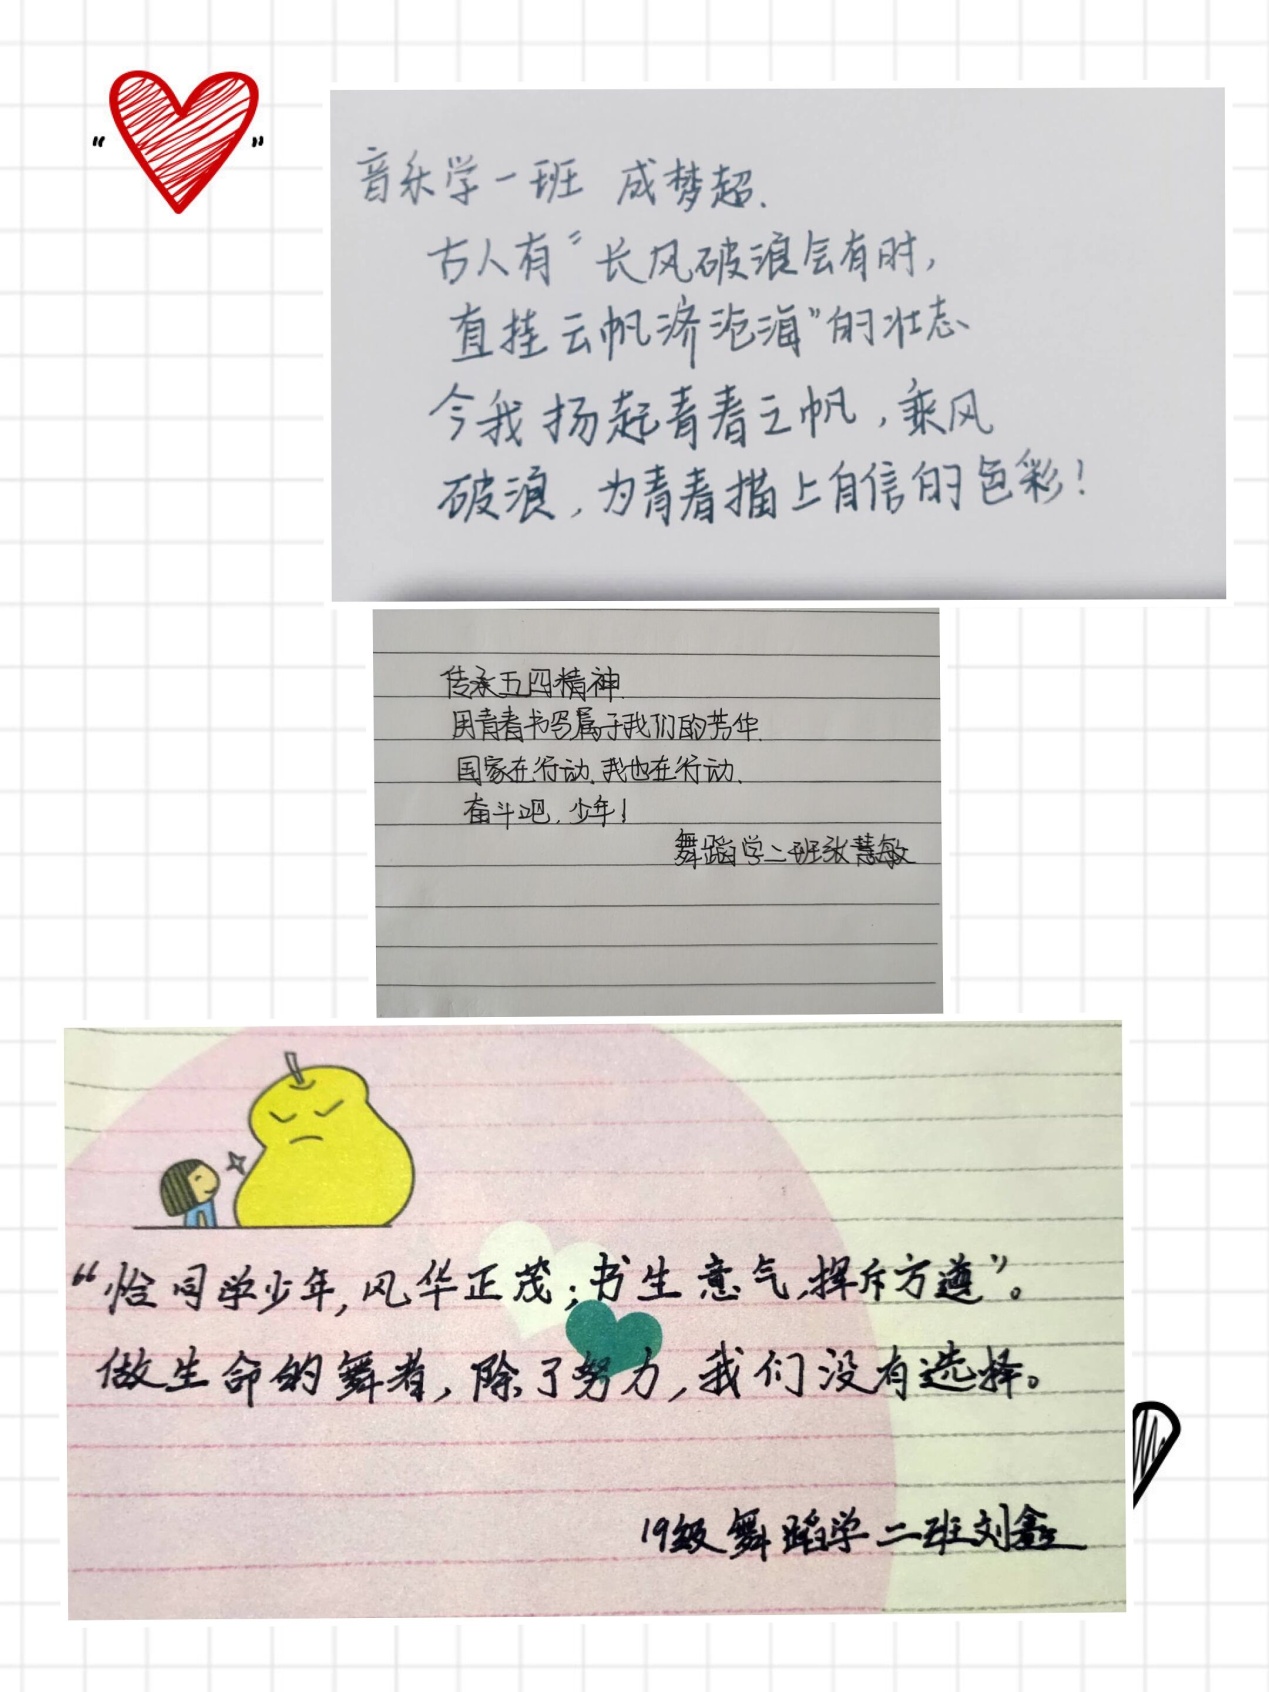 音乐学一班 成梦超.
古人有“长风破浪会有时,
直挂云帆济沧海”的壮志
今我扬起青春之帆,乘风
破浪,为青春描上自信的色彩!
传承五四精神
用青春书写属于我们的芳华.
国家在行动.我也在行动.
奋斗吧.少年!
舞蹈学二班张慧敏
“恰同学少年,风华正茂;书生意气,挥斥方遒”。
做生命的舞者,除了努力,我们没有选择。
19级舞蹈学二班刘鑫